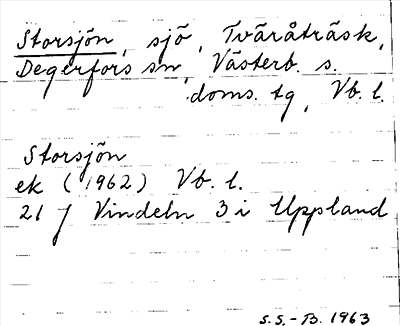 Storsjön, sjö, Tväråträsk,
Degerfors sn, Västerb. s.
doms. tg, Vb. l.
Storsjön
ek (1962) Vb. l.
21 J Vindeln 3 i Uppland
S.S.-B. 1963